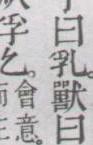 曰乳。獸曰
孚乞。會意。